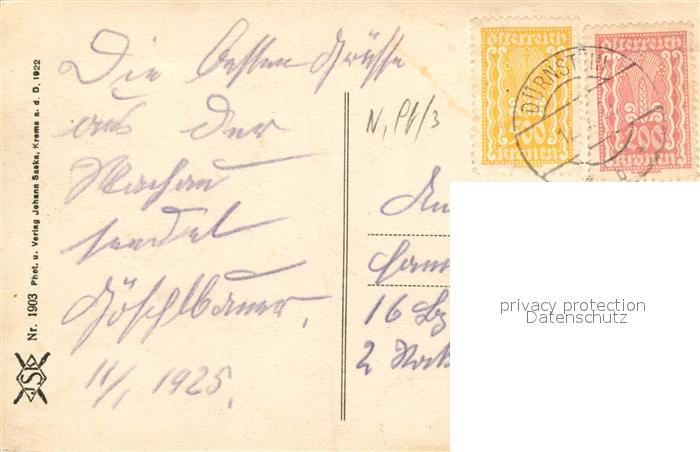 Die besten Grüsse
aus der
Wachau
sendet
Höschlbauer.
11/1 1925.
Nr. 1903 Phot. u. Verlag Johann Saska, Krems a. d. D. 1922
JSK
N, Pf/3
Österreich
Kronen
Österreich
Kronen
DÜRNSTEIN
An
16
2
privacy protection
Datenschutz